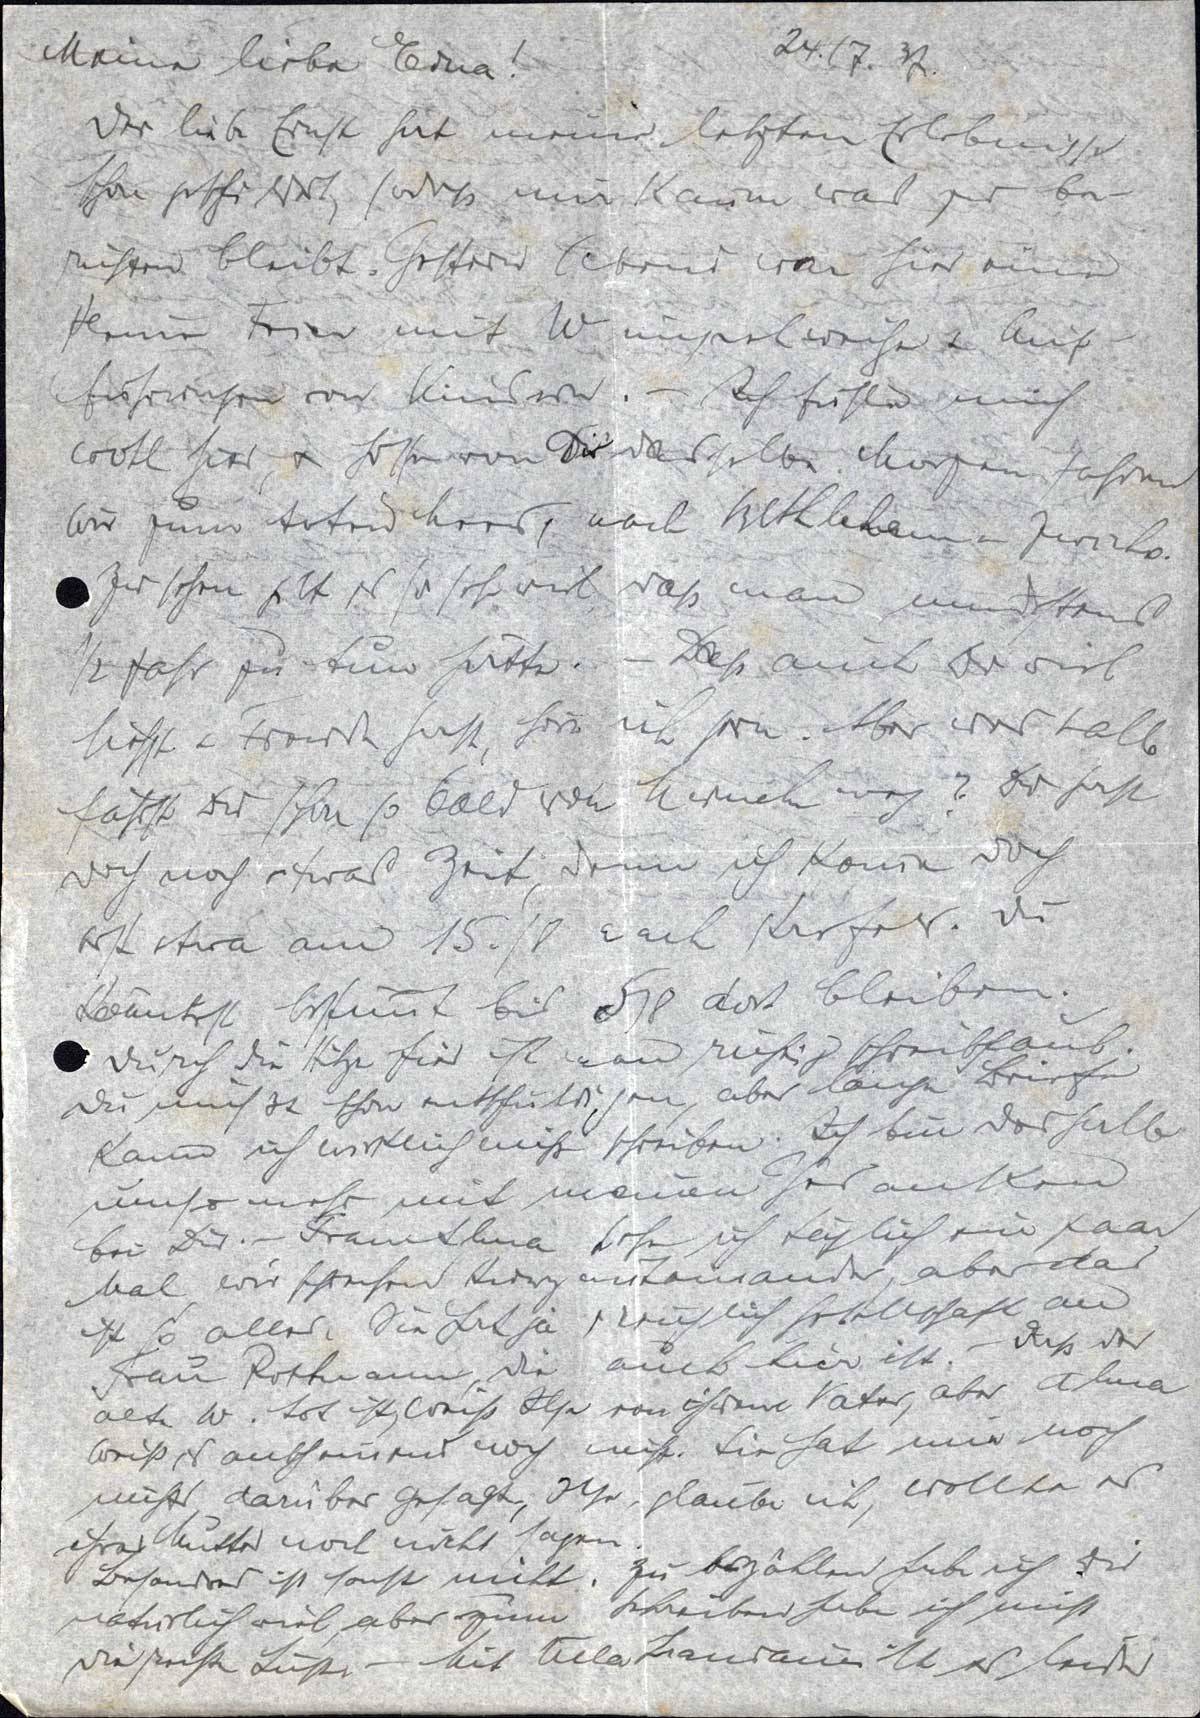 Meine liebe Edna! 24./7. 37.
Der liebe Ernst hat meine letzten Erlebnisse
schon geschildert, sodaß mir kaum was zu be-
richten bleibt. Gestern Abend war hier eine
kleine Feier mit Wimpelweihe & Auf-
führungen von Kindern. – Ich fühle mich
wohl hier, & hoffe von Dir dasselbe. Morgen fahren
wir zum toten Meer, nach Bethlehem & Jericho.
Zu sehen gibt es so sehr viel, daß man mindestens
1/2 Jahr zu tun hätte. – Daß auch Du viel
& Freude hast, höre ich gern. Aber weshalb
fährst Du schon so bald von weg? Du hast
doch noch etwas Zeit, denn ich komme doch
erst etwa am 15./8 nach. Du
könntest bestimmt bis 5/8 dort bleiben.
Durch die Hitze hier ist man richtig schreibfaul.
Du mußt schon entschuldigen, aber lange Briefe
kann ich wirklich nicht schreiben. Ich bin deshalb
umso mehr mit meinen Gedanken
bei Dir. – Frau Alma sehe ich täglich ein paar
Mal, wir sprechen kurz miteinander, aber das
ist so alles. Sie hat ja reichlich Gesellschaft an
Frau Rothmann, die auch hier ist. – Daß der
alte W. tot ist, weiß Ilse von ihrem Vater, aber Alma
weiß es anscheinend noch nicht. Sie hat mir noch
nichts darüber gesagt, Ilse, glaube ich, wollte es
ihrer Mutter noch nicht sagen.
Besonderes ist sonst nicht. Zu erzählen habe ich Dir
natürlich viel, aber zum Schreiben habe ich nicht
die rechte Lust. – Mit Landau ist es leider